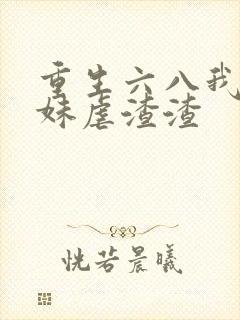 重生六八我
妹虐渣渣
恍若晨曦